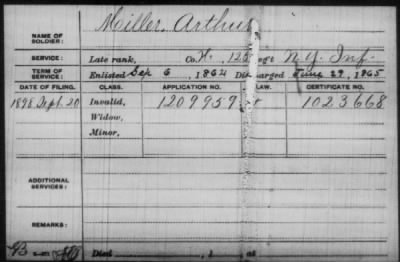 Miller, Arthur
NAME OF SOLDIER:
SERVICE: Late rank, Co. H, 125 Reg't N.Y. Inf.
TERM OF SERVICE: Enlisted Sep 6, 1864 Discharged June 29, 1865
DATE OF FILING. CLASS. APPLICATION NO. LAW. CERTIFICATE NO.
1898 Sept. 20 Invalid, 1209959 1023668
Widow,
Minor,
ADDITIONAL SERVICES:
REMARKS:
Died , 1 , at